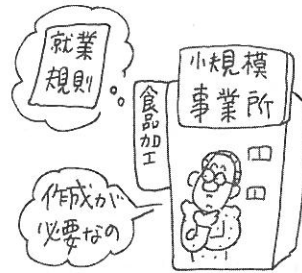 就業
規則
小規模
事業所
食品加工
作成が
必要なの